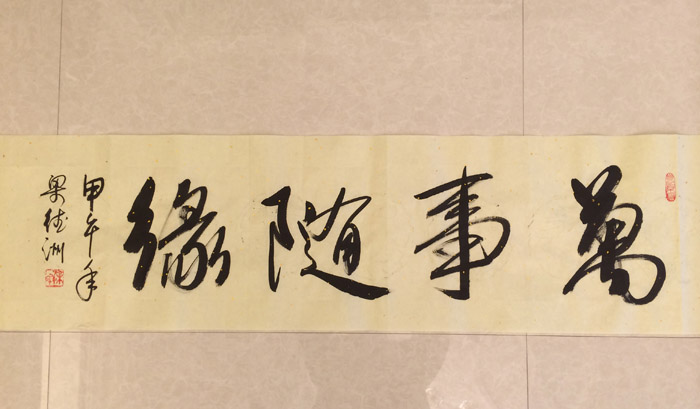 萬事隨緣
甲午年
梁德洲